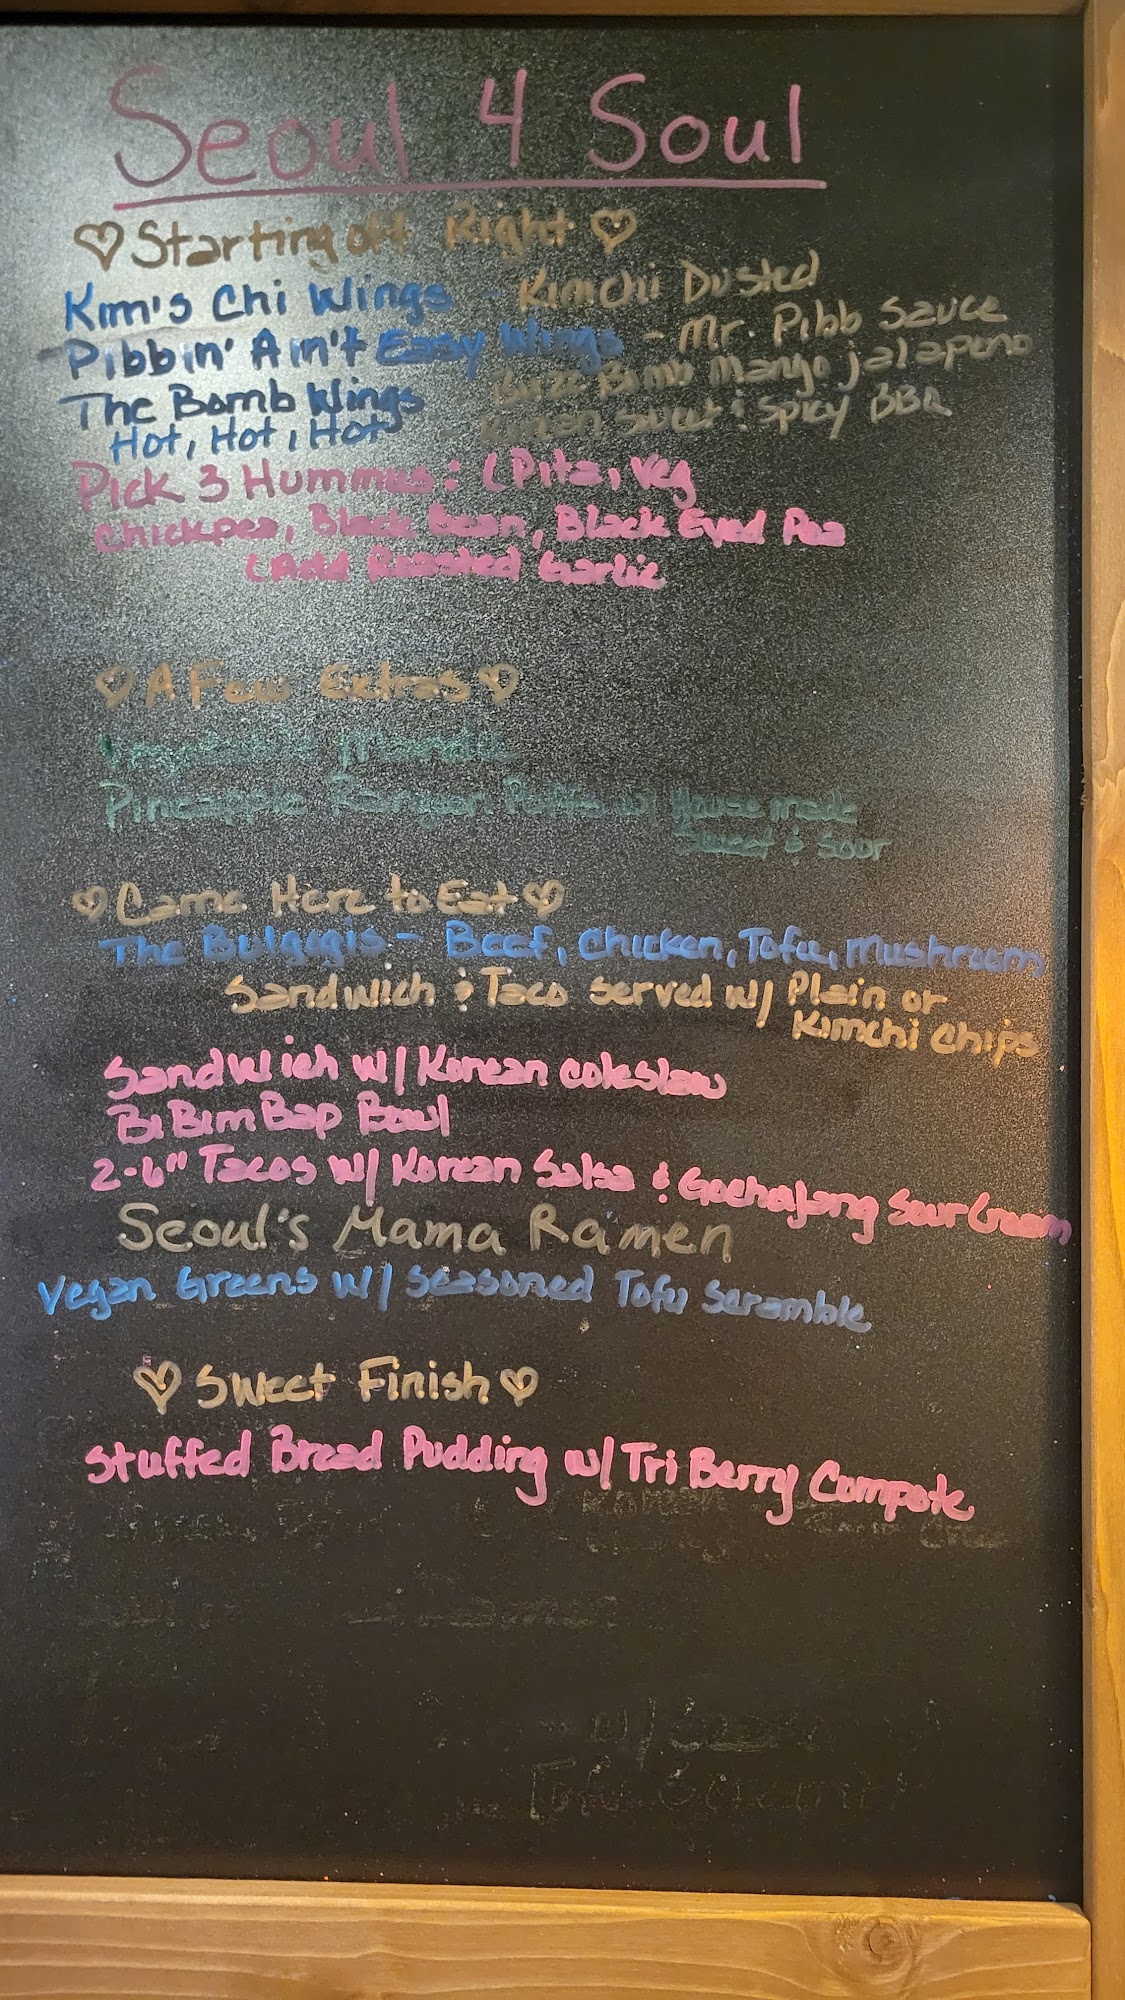 Seoul 4 Soul
♡ Starting off Right ♡
Kim's Chi Wings - Kimchi Dusted
Pibbin' Ain't Easy Wings - Mr. Pibb Sauce
The Bomb Wings Bomb Mango jalapeno
Hot, Hot, Hot - Korean Sweet & Spicy BBQ
Pick 3 Hummus: (Pita, Veg
Chickpea, Black Bean, Black Eyed Pea
(Add Roasted Garlic
♡ A Few Extras ♡
Vegetable Mandu
Pineapple Rangoon Puffs w/ House made
Sweet & Sour
♡ Came Here to Eat ♡
The Bulgogis - Beef, Chicken, Tofu, Mushroom
Sandwich & Taco served w/ Plain or
Kimchi Chips
Sandwich w/ Korean coleslaw
BiBimBap Bowl
2-6" Tacos w/ Korean Salsa & Gochajang Sour Cream
Seoul's Mama Ramen
Vegan Greens w/ Seasoned Tofu Scramble
♡ Sweet Finish ♡
Stuffed Bread Pudding w/ Tri Berry Compote